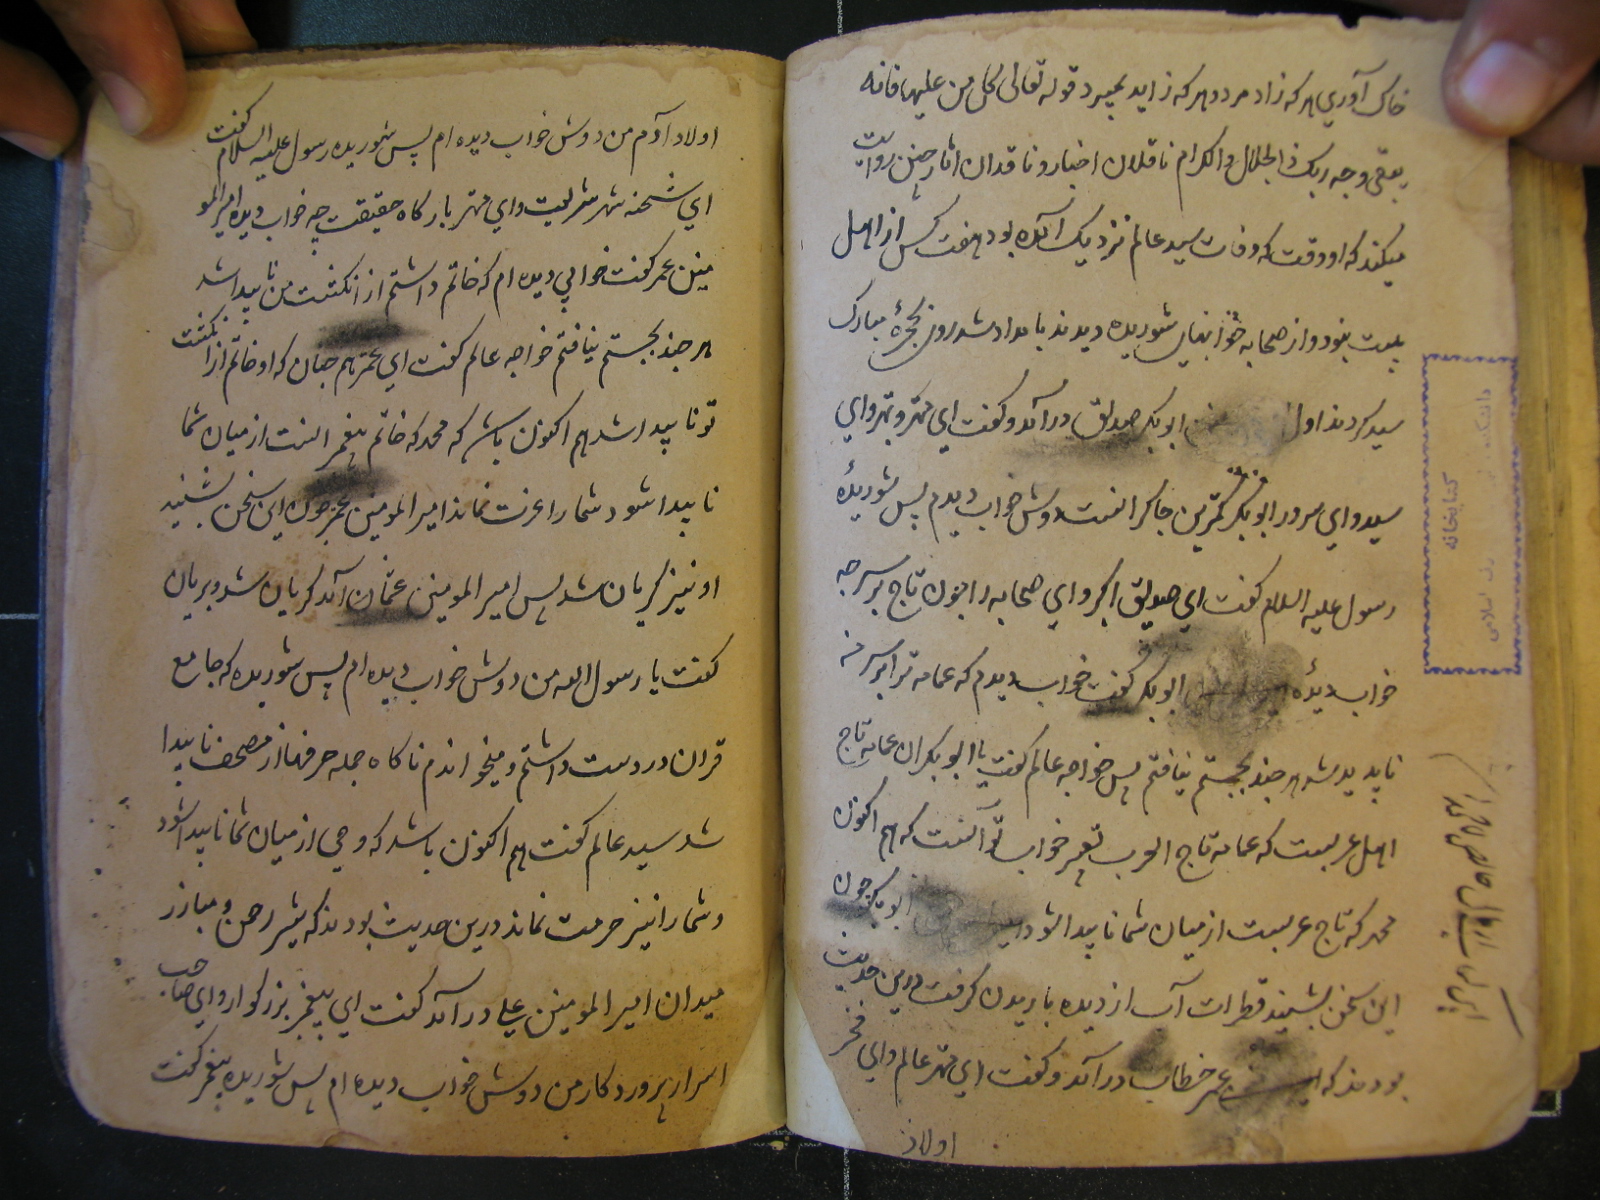 خاک آوری هر که زاد مرد و هر که زاید بمیرد قوله تعالی کل من علیها فانه
یبقی وجه ربک ذالجلال والاکرام ناقلان اخبار و ناقدان اثار چنین روایت
میکنند که او وقت که وفات سید عالم نزدیک آمده بود هفت کس از اهل
بیت بود و از صحابه خوابهای شوریده دیدند بامداد شد روی بحجرهٔ مبارک
سید کردند اول ابوبکر صدیق درآمد و گفت ای مهتر و بهتر وای
سید و ای سرور ابوبکر کمترین چاکر است دوش خواب دیدم بس شوریدهٔ
رسول علیه السلام گفت ای صدیق اکبر و ای صحابه را چون تاج بر سر چه
خواب دیدهٔ ابوبکر گفت خواب دیدم که عمامه ترا بر سر من
ناپدید شد هر چند بجستم نیافتم پس خواجه عالم گفت یا ابوبکر ان عمامه تاج
اهل عربست که عمامه تاج العرب تعبیر خواب تو آنست که هم اکنون
محمد که تاج عربست از میان شما ناپیدا شود ابوبکر چون
این سخن بشنید قطرات آب از دیده باریدن گرفت درین حدیث
بودند که عمر خطاب درآمد و گفت ای مهتر عالم وای فخر
اولاد
کتابخانه
اولاد آدم من دوش خواب دیده ام پس شوریده رسول علیه السلام گفت
ای شحنه شهر شریعت وای مهتر بارگاه حقیقت چه خواب دیده امیرالمو
منین عمر گفت خوابی دیده ام که خاتم داشتم از انگشت من ناپیدا شد
هر چند بجستم نیافتم خواجه عالم گفت ای عمر هم چنان که او خاتم از انگشت
تو ناپیدا شد هم اکنون باش که محمد که خاتم پیغمبر انست از میان شما
ناپیدا شود شما را عزت نماند امیرالمومنین عمر چون این سخن بشنید
او نیز گریان شد پس امیرالمومنین عثمان آمد گریان شد و بریان
گفت یا رسول الله من دوش خواب دیده ام پس شوریده که جامع
قران در دست داشتم و میخواندم ناگاه جمله حرفها از مصحف ناپیدا
شد سید عالم گفت هم اکنون باشد که وحی از میان شما ناپیدا شود
و شما را نیز حرمت نماند درین حدیث بودند که شیر رحمن و مبارز
میدان امیرالمومنین علی درآمد گفت ای پیغمبر بزرگوار وای صاحب
اسرار پروردگار من دوش خواب دیده ام پس شوریده پیغمبر گفت